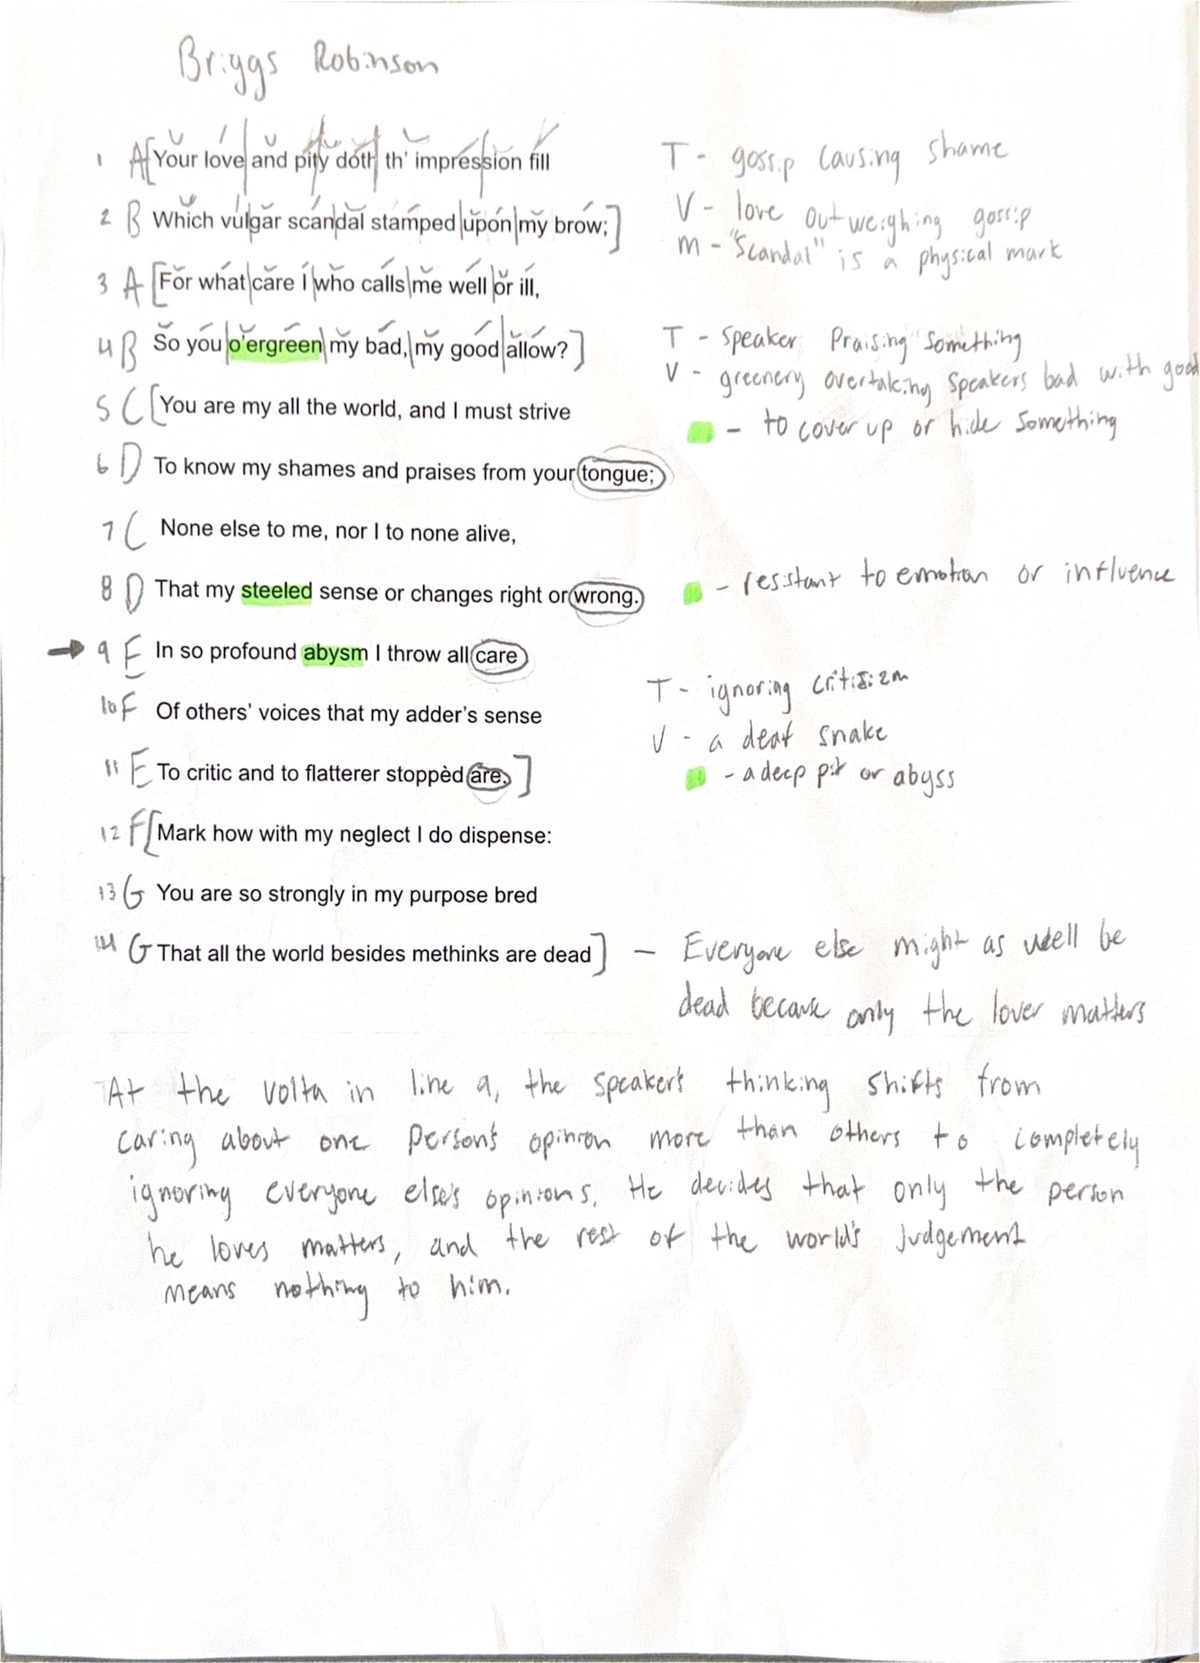 Briggs Robinson
1 A[ Your love and pity doth th' impression fill
T - gossip causing shame
2 B Which vulgar scandal stamped upon my brow;]
V - love outweighing gossip
m - "Scandal" is a physical mark
3 A [For what care I who calls me well or ill,
4 B So you o'ergreen my bad, my good allow?]
T - Speaker Praising something
V - greenery overtaking speakers bad with good
5 C [You are my all the world, and I must strive
- to cover up or hide something
6 D To know my shames and praises from your tongue;
7 C None else to me, nor I to none alive,
8 D That my steeled sense or changes right or wrong.
- resistant to emotion or influence
→ 9 E In so profound abysm I throw all care
T - ignoring critisizm
10 F Of others' voices that my adder's sense
V - a deaf snake
11 E To critic and to flatterer stoppèd are.]
- a deep pit or abyss
12 F[ Mark how with my neglect I do dispense:
13 G You are so strongly in my purpose bred
14 G That all the world besides methinks are dead]
- Everyone else might as well be
dead because only the lover matters
At the volta in line 9, the speaker's thinking shifts from
caring about one person's opinion more than others to completely
ignoring everyone else's opinions. He decides that only the person
he loves matters, and the rest of the world's judgement
means nothing to him.